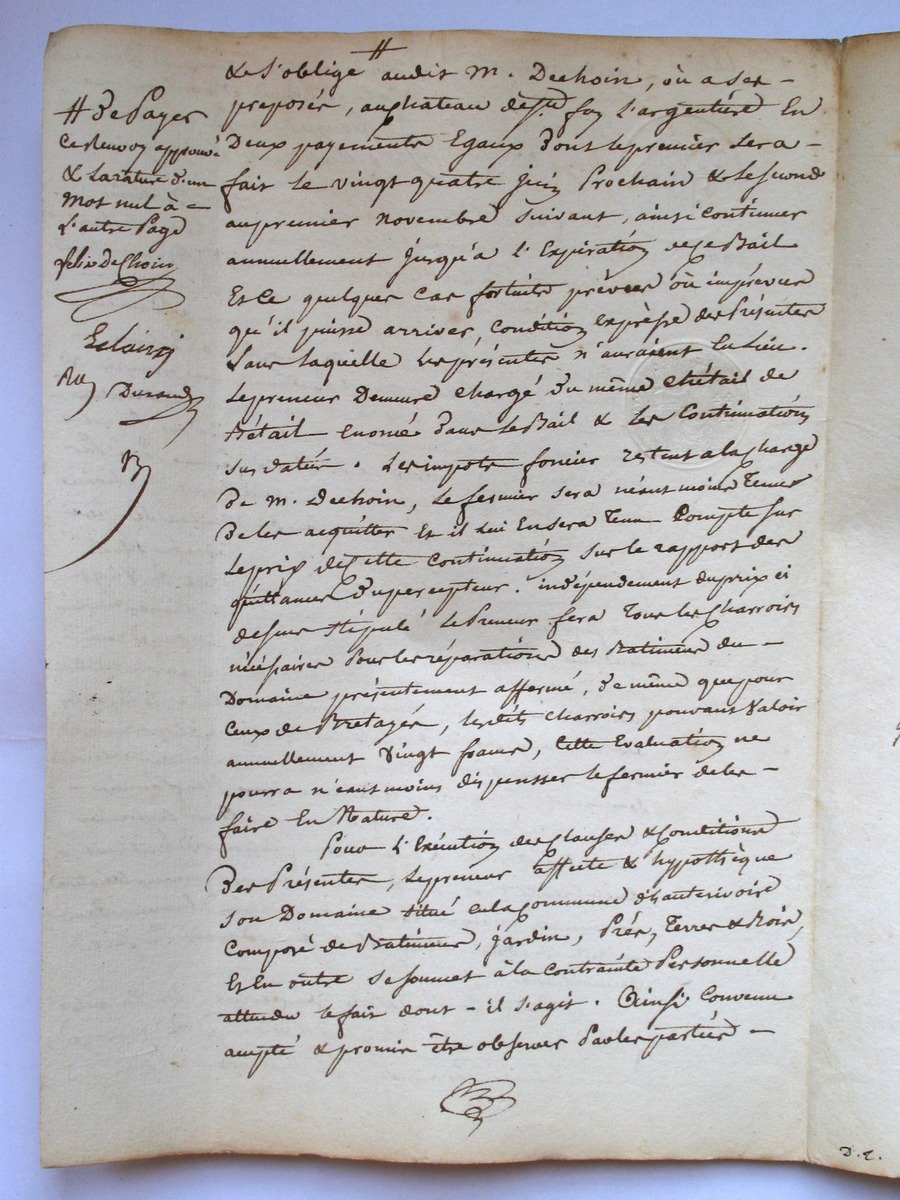 # De Payer
Ce Renvoy approuvé
& La rature d'un
Mot nul à
L'autre Page
felix DeChoin
Durand
& S'oblige # audit M. Dechoin, où a ses
preposés, au Chateau de Ste. foy L'argentière En
Deux payements Egaux Dont le premier Sera
fait le vingt quatre Juin Prochain & le Second
au premier Novembre Suivant, ainsi Continuer
annuellement Jusqu'a L'Expiration de Ce Bail
Et Ce quelques Cas fortuits prévus où imprévus
qu'il puisse arriver, Condition Expresse des Présentes
Sans laquelle Les présentes n'auraient Eu Lieu.
Le preneur Demeure Chargé Du même Chétail de
Bétail Enoncé Dans Le Bail & Les Continuation
Sus datés. Les impots foncier restent a la Charge
De M. Dechoin, Le fermier Sera néant moins Tenus
De les acquitter Et il Lui En Sera Tenu Compte Sur
Le prix de Cette Continuation Sur le rapport des
quittances Du percepteur. indépendement du prix ci
dessus Stipulé Le Preneur fera Tous les Charrois
nécéssaires Pour les réparations des Batimens du
Domaine présentement affermé, De même que pour
Ceux de Bretagés, lesdits Charrois pouvant Valoir
annuellement Vingt francs, Cette Evaluation ne
pourra n'éant moins dispensser le fermier de les
faire En Nature.
Pour L'Exécution des Clauses & Conditions
Des Présentes, Le preneur affecte & hypothèque
Son Domaine Situé en la Commune d'hauterivoire
Composé de Batimens, Jardin, Prés, Terres & Bois,
Et En outre Se Soumet à la Contrainte Personnelle
attendu le fait dont il S'agit. Ainsi Convenu
accepté & promis être observer Par les parties
D. 2.